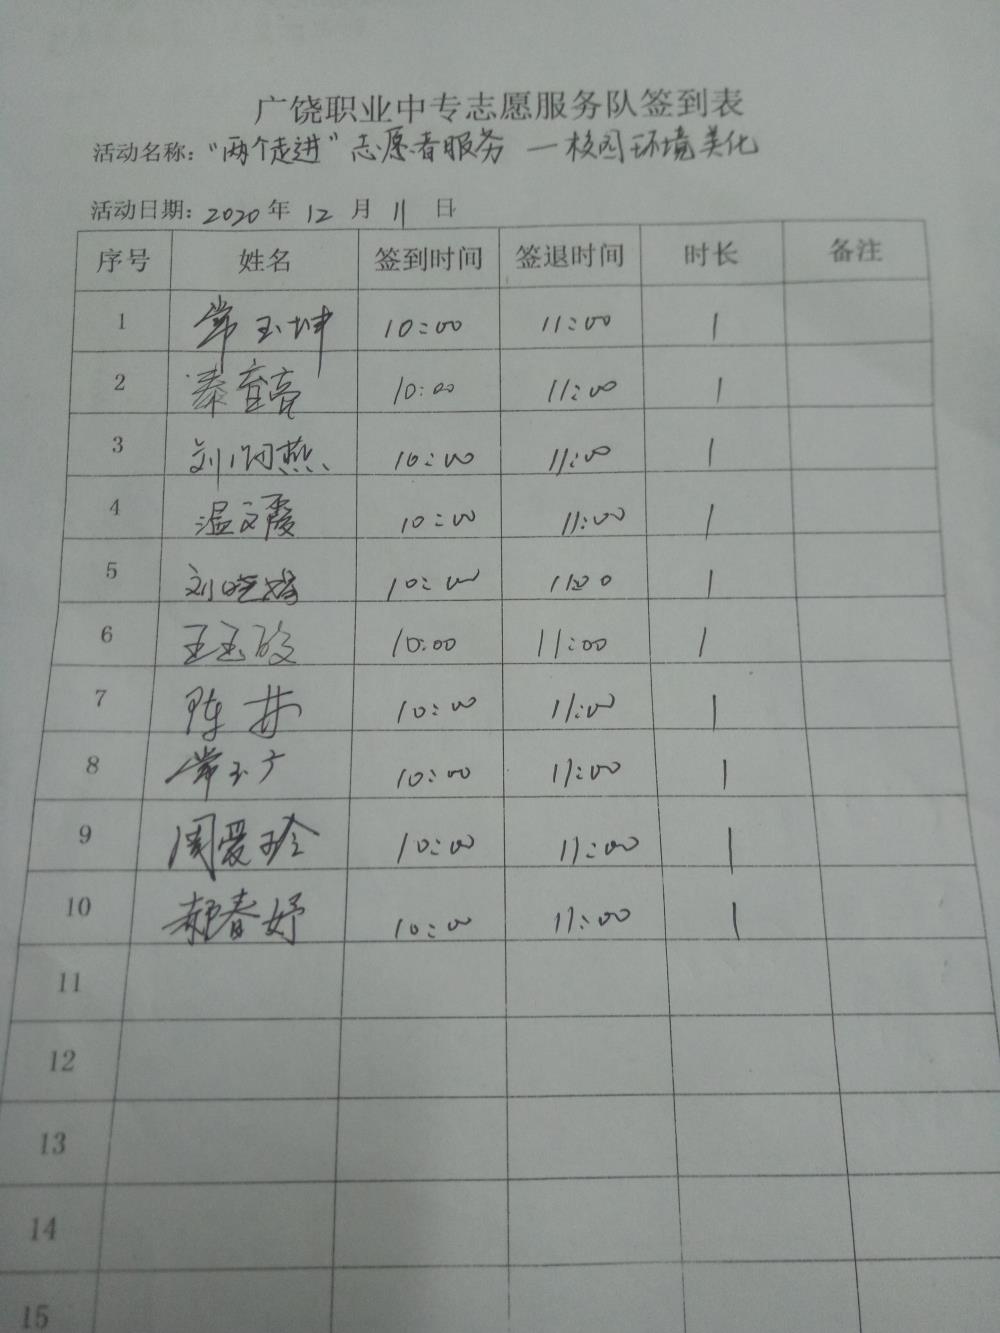 广饶职业中专志愿服务队签到表
活动名称："两个走进"志愿者服务 — 校园环境美化
活动日期：2020年 12 月 11 日
序号 姓名 签到时间 签退时间 时长 备注
1 常玉坤 10:00 11:00 1
2 10:00 11:00 1
3 刘 燕 10:00 11:00 1
4 温文霞 10:00 11:00 1
5 刘晓 10:00 11:00 1
6 王玉 10:00 11:00 1
7 陈 10:00 11:00 1
8 常玉广 10:00 11:00 1
9 周爱玲 10:00 11:00 1
10 郝春妤 10:00 11:00 1
11
12
13
14
15